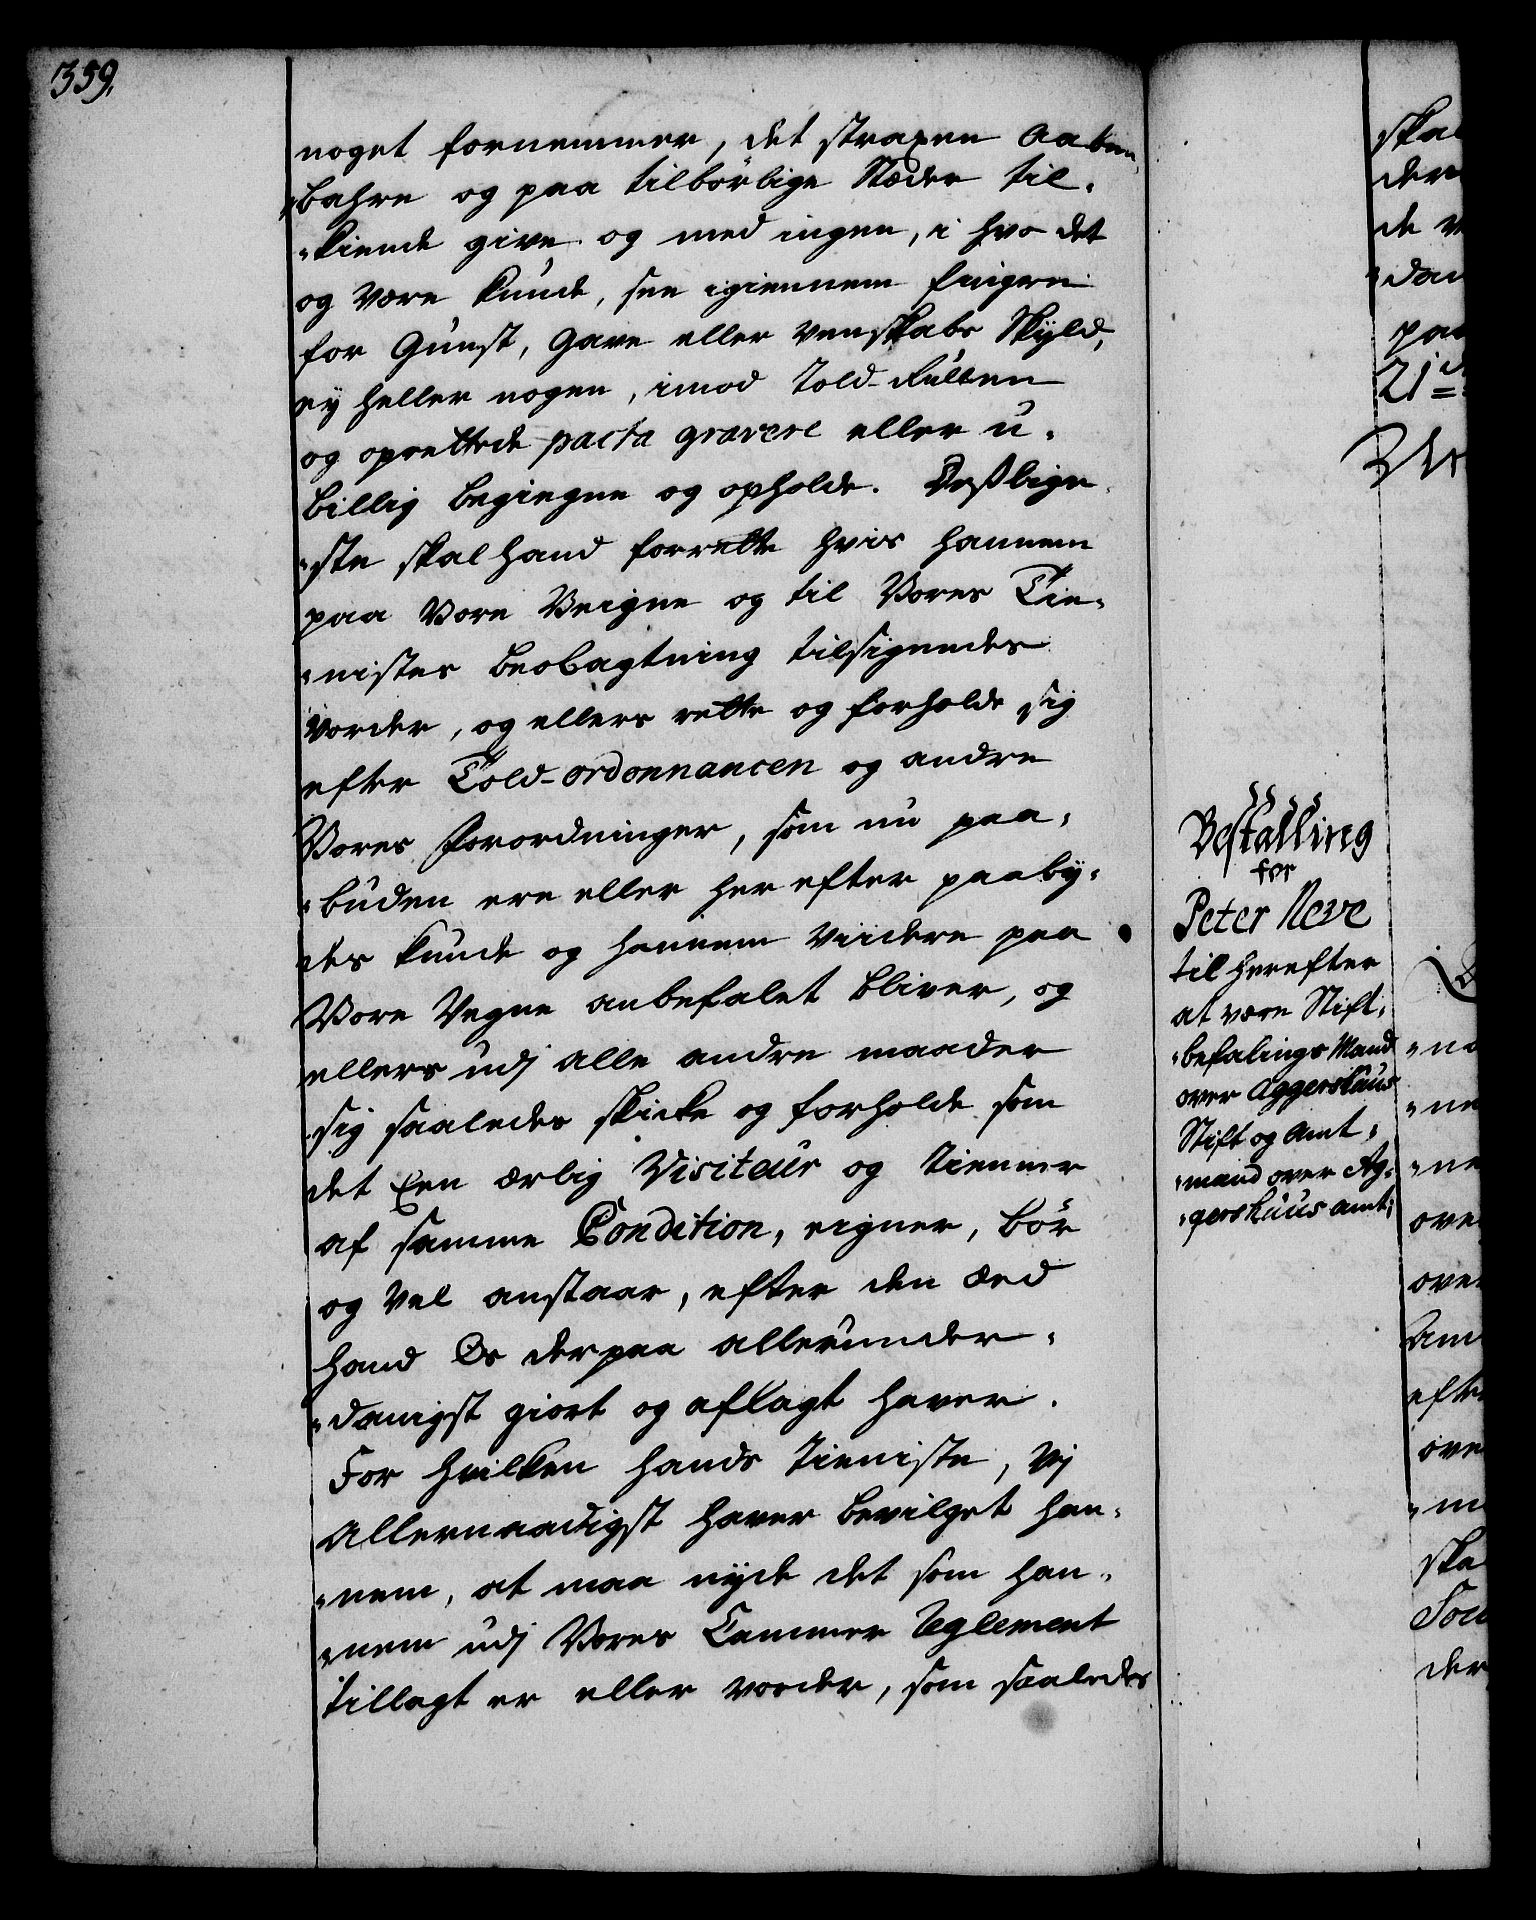 359.
noget fornemmer, det straxen Aaben„
„bahre og paa tilbörlige Stæder til„
„kiende give og med ingen, i hvo det
og være kunde, see igiennem fingre
for Gunst, Gave eller Venskabs Skyld,
ej heller nogen, imod Told-Rullen
og oprettede pacta gravere eller u„
billig begiegne og opholde. Desslige„
„ste skal hand forrette hvis hannem
paa Vore Veigne og til Vores Tie„
„nistes beobagtning tilsigendes
vorder, og ellers rette og forholde sig
efter Told-ordonnancen og andre
Vores Forordninger, som nu paa„
„buden ere eller her efter paaby„
des kunde og hannem viidere paa
Vore Vegne anbefalet bliver, og
ellers udj alle andre maader
sig saaledes skicke og forholde som
det Een ærlig Visiteur og tienner
af samme Condition, eigner, bör
og vel anstaar, efter den æed
hand Os derpaa allerunder„
„danigst giort og aflagt haver.
For hvilken hands tieniste, Vj
allernaadigst haver bevilget han„
„nem, at maa nyde det som han„
„nem udj Vores Cammer Reglement
tillagt er eller vorder, som saaledes
Bestalling
for
Peter Neve
til herefter
at være Stift„
„befalings Mand
over Aggershuus
Stift og Amt„
„mand over Ag„
„gershuus amt;
ska
der
de v
„dan
paa
21
„no
„ne
„ne
ove
over
Am
efte
ove
„m
ska
Tou
der